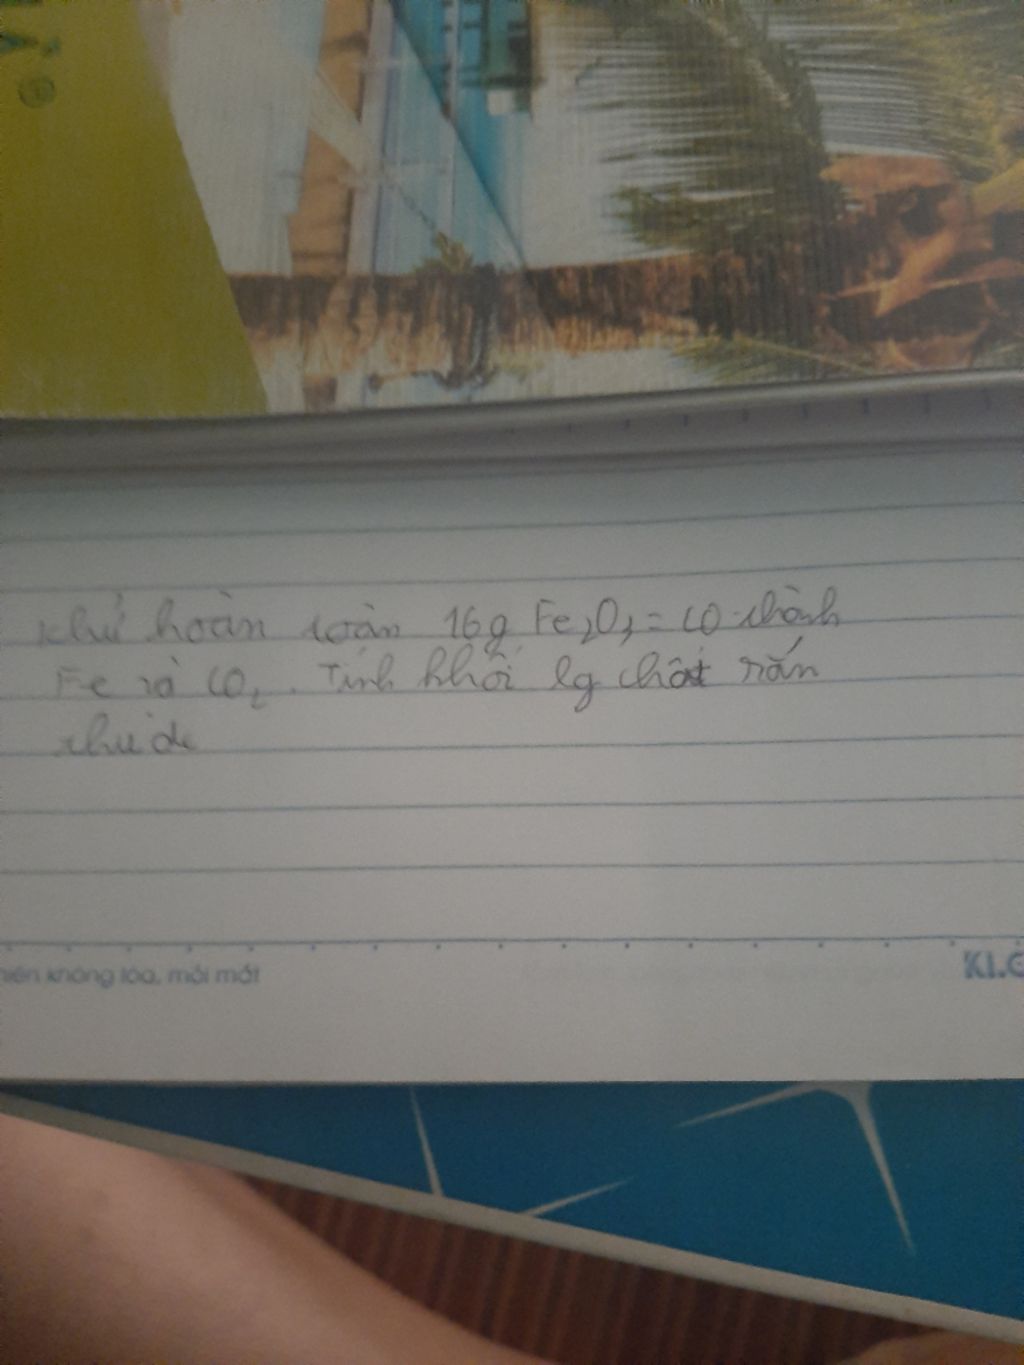 Khử hoàn toàn 16g Fe₂O₃ = CO thành
Fe và CO₂. Tính khối lg chất rắn
thu đc
hiên không lóa, mỏi mắt